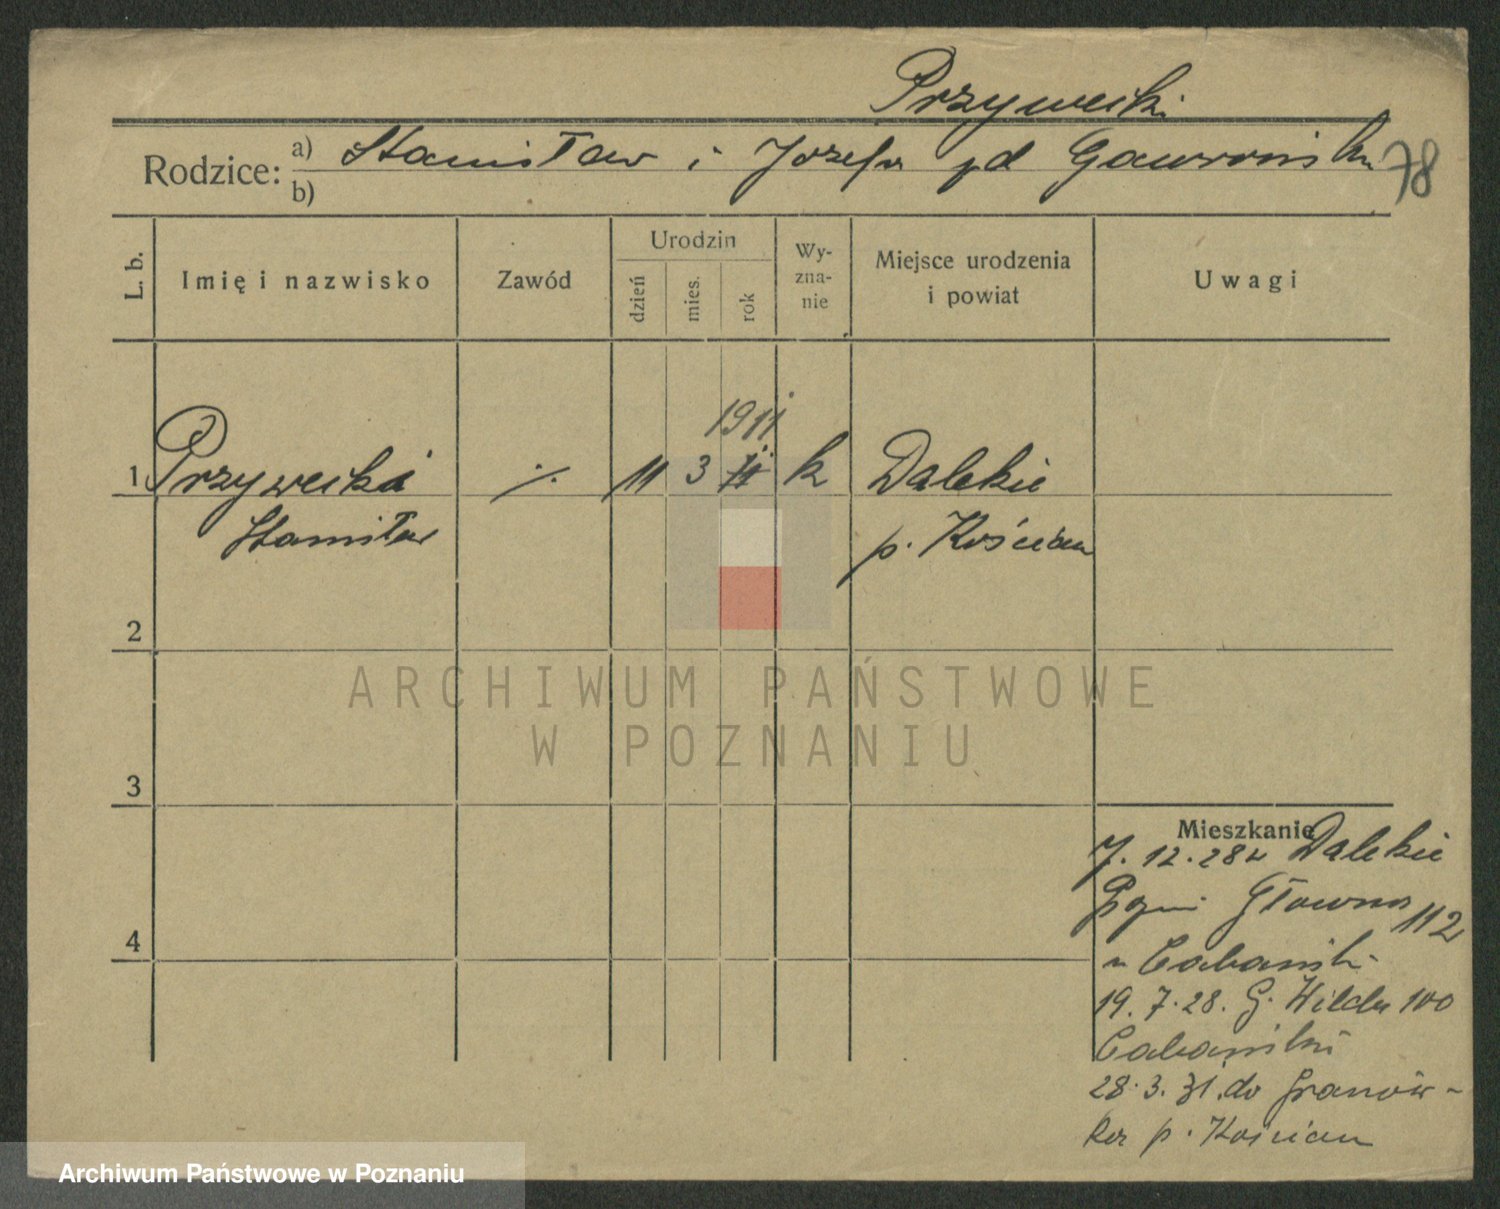 Przywecki
Rodzice: a) Stanisław i Józefa zd Gawrońska
b)
78
L. b.
Imię i nazwisko
Zawód
Urodzin
dzień
mies.
rok
Wy-
zna-
nie
Miejsce urodzenia
i powiat
Uwagi
1911
1 Przywecki ./. 11 3 11 k Dalekie
Stanisław p. Kościan
2
3
4
Mieszkanie
7.12.28 z Dalekie
Główna 112
19.7.28. G. Wilda 100
28.3.31. do Granów-
ka p. Kościan
ARCHIWUM PAŃSTWOWE
W POZNANIU
Archiwum Państwowe w Poznaniu